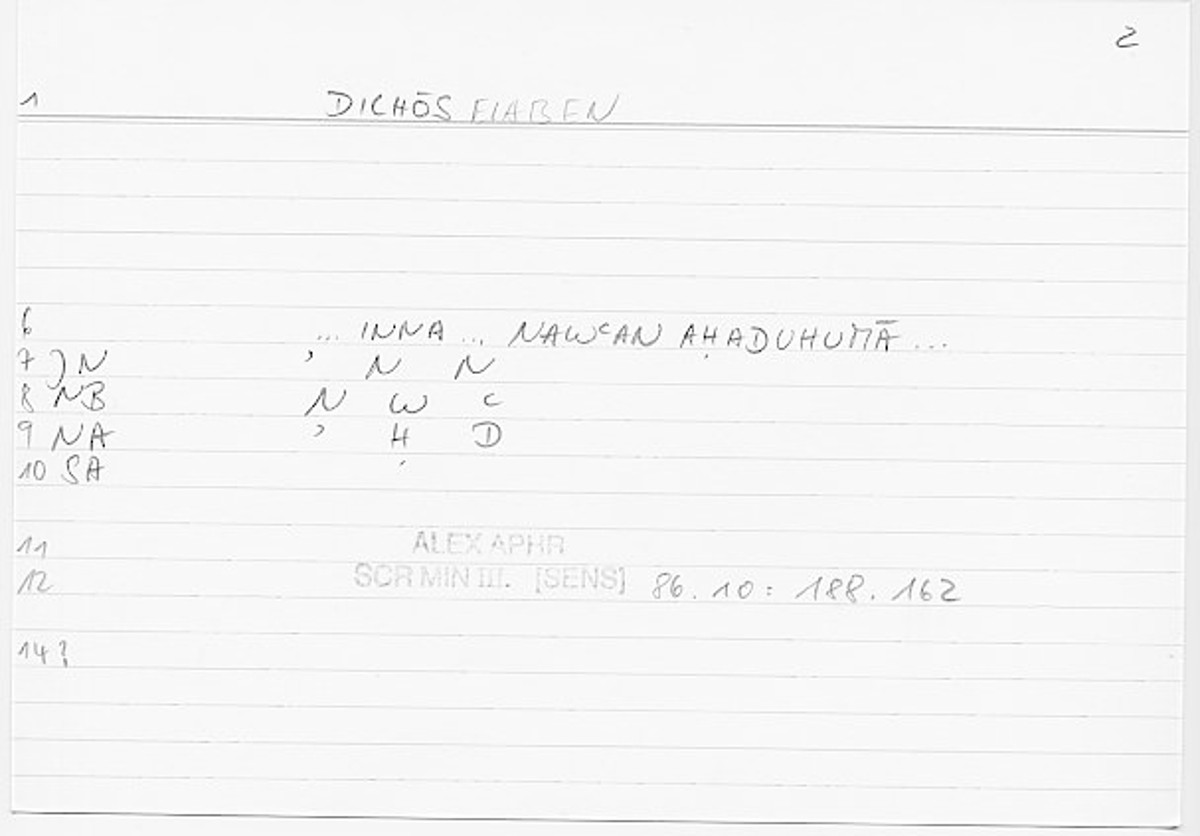 2
1 DICHŌS ELABEN
6 ... INNA ... NAWʿAN AḤADUHUMĀ ...
7 ) N ʾ N N
8 NB N W ʿ
9 NA ʾ Ḥ D
10 SA
11 ALEX APHR
12 SCR MIN III. [SENS] 86.10: 188.162
14?